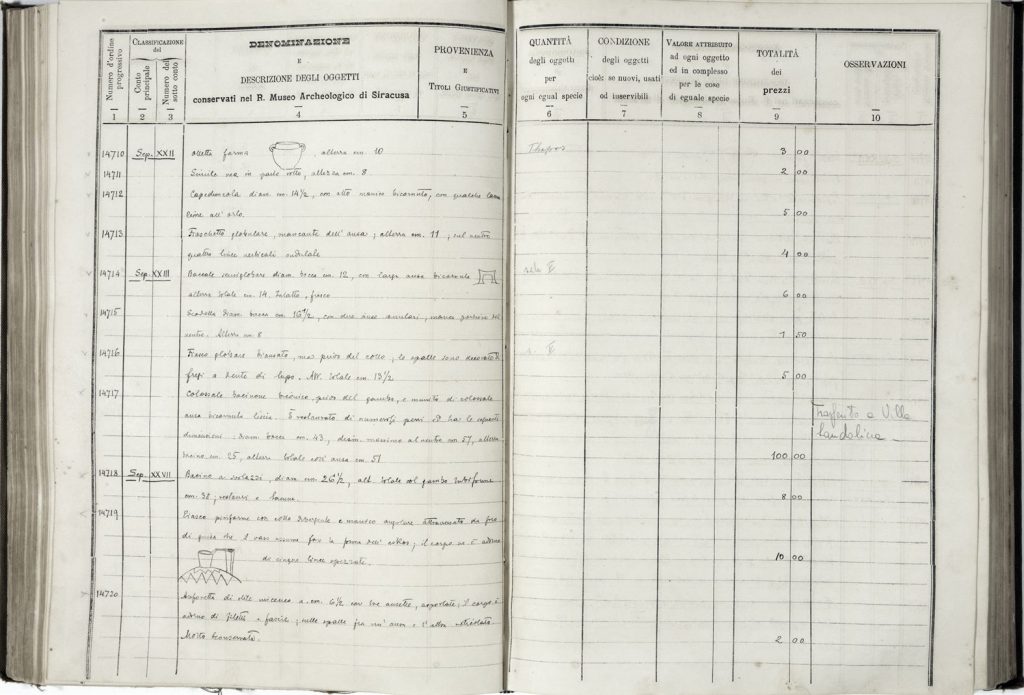 Numero d'ordine progressivo
CLASSIFICAZIONE
del
Conto principale
Numero del sotto conto
DENOMINAZIONE
E
DESCRIZIONE DEGLI OGGETTI
conservati nel R. Museo Archeologico di Siracusa
PROVENIENZA
E
TITOLI GIUSTIFICATIVI
QUANTITÀ
degli oggetti
per
ogni egual specie
CONDIZIONE
degli oggetti
cioè: se nuovi, usati
od inservibili
VALORE ATTRIBUITO
ad ogni oggetto
ed in complesso
per le cose
di eguale specie
TOTALITÀ
dei
prezzi
OSSERVAZIONI
1 2 3 4 5 6 7 8 9 10
14710 Sep. XXII forma altezza cm. 10 Thapsos 3 00
14711 Simile ma in parte rotto, altezza cm. 8 2 00
14712 Capeduncola diam. cm. 14½, con alto manico bicornuto, con qualche
all'orlo. 5 00
14713 Fiaschetto globulare, mancante dell'ansa; altezza cm. 11; sul ventre
quattro linee verticali ondulate 4 00
14714 Sep. XXIII Boccale diam. bocca cm. 12, con larga ansa bicornute
altezza totale cm. 14. Intatto, 6 00
14715 Scodella diam. bocca cm. 16½, con due anse anulari; manca porzione del
ventre. Altezza cm 8 1 50
14716 Vaso globare biansato, ma privo del collo; le spalle sono decorate di
fregi a dente di lupo. Alt. totale cm. 13½ 5 00
14717 Colossale bacinone biconico, privo del gambo, e munito di colossale
ansa bicornuta liscia. È restaurato di numerosi pezzi ed ha le seguenti
dimensioni: diam. bocca cm. 43, diam. massimo al ventre cm. 57, altezza
bacino cm. 35, altezza totale coll'ansa cm. 51 100 00
Trasferito a Villa
Landolina
14718 Sep. XXVII Bacino a diam. cm. 26½, alt. totale col gambo tubiforme
cm. 38; restauri e lacune. 8 00
14719 Fiasco piriforme con collo e manico angolare attraversato da foro
di guisa che il vaso assume forse la forma dell'askos; il corpo ne è adorno
di cinque linee spezzate. 10 00
14720 Anforetta di stile miceneo a. cm. 6½ con tre ansette, asportate; il corpo è
adorno di filetti e fascie; sulle spalle fra un'ansa e l'altra reticolato.
Molto sconservata. 2 00